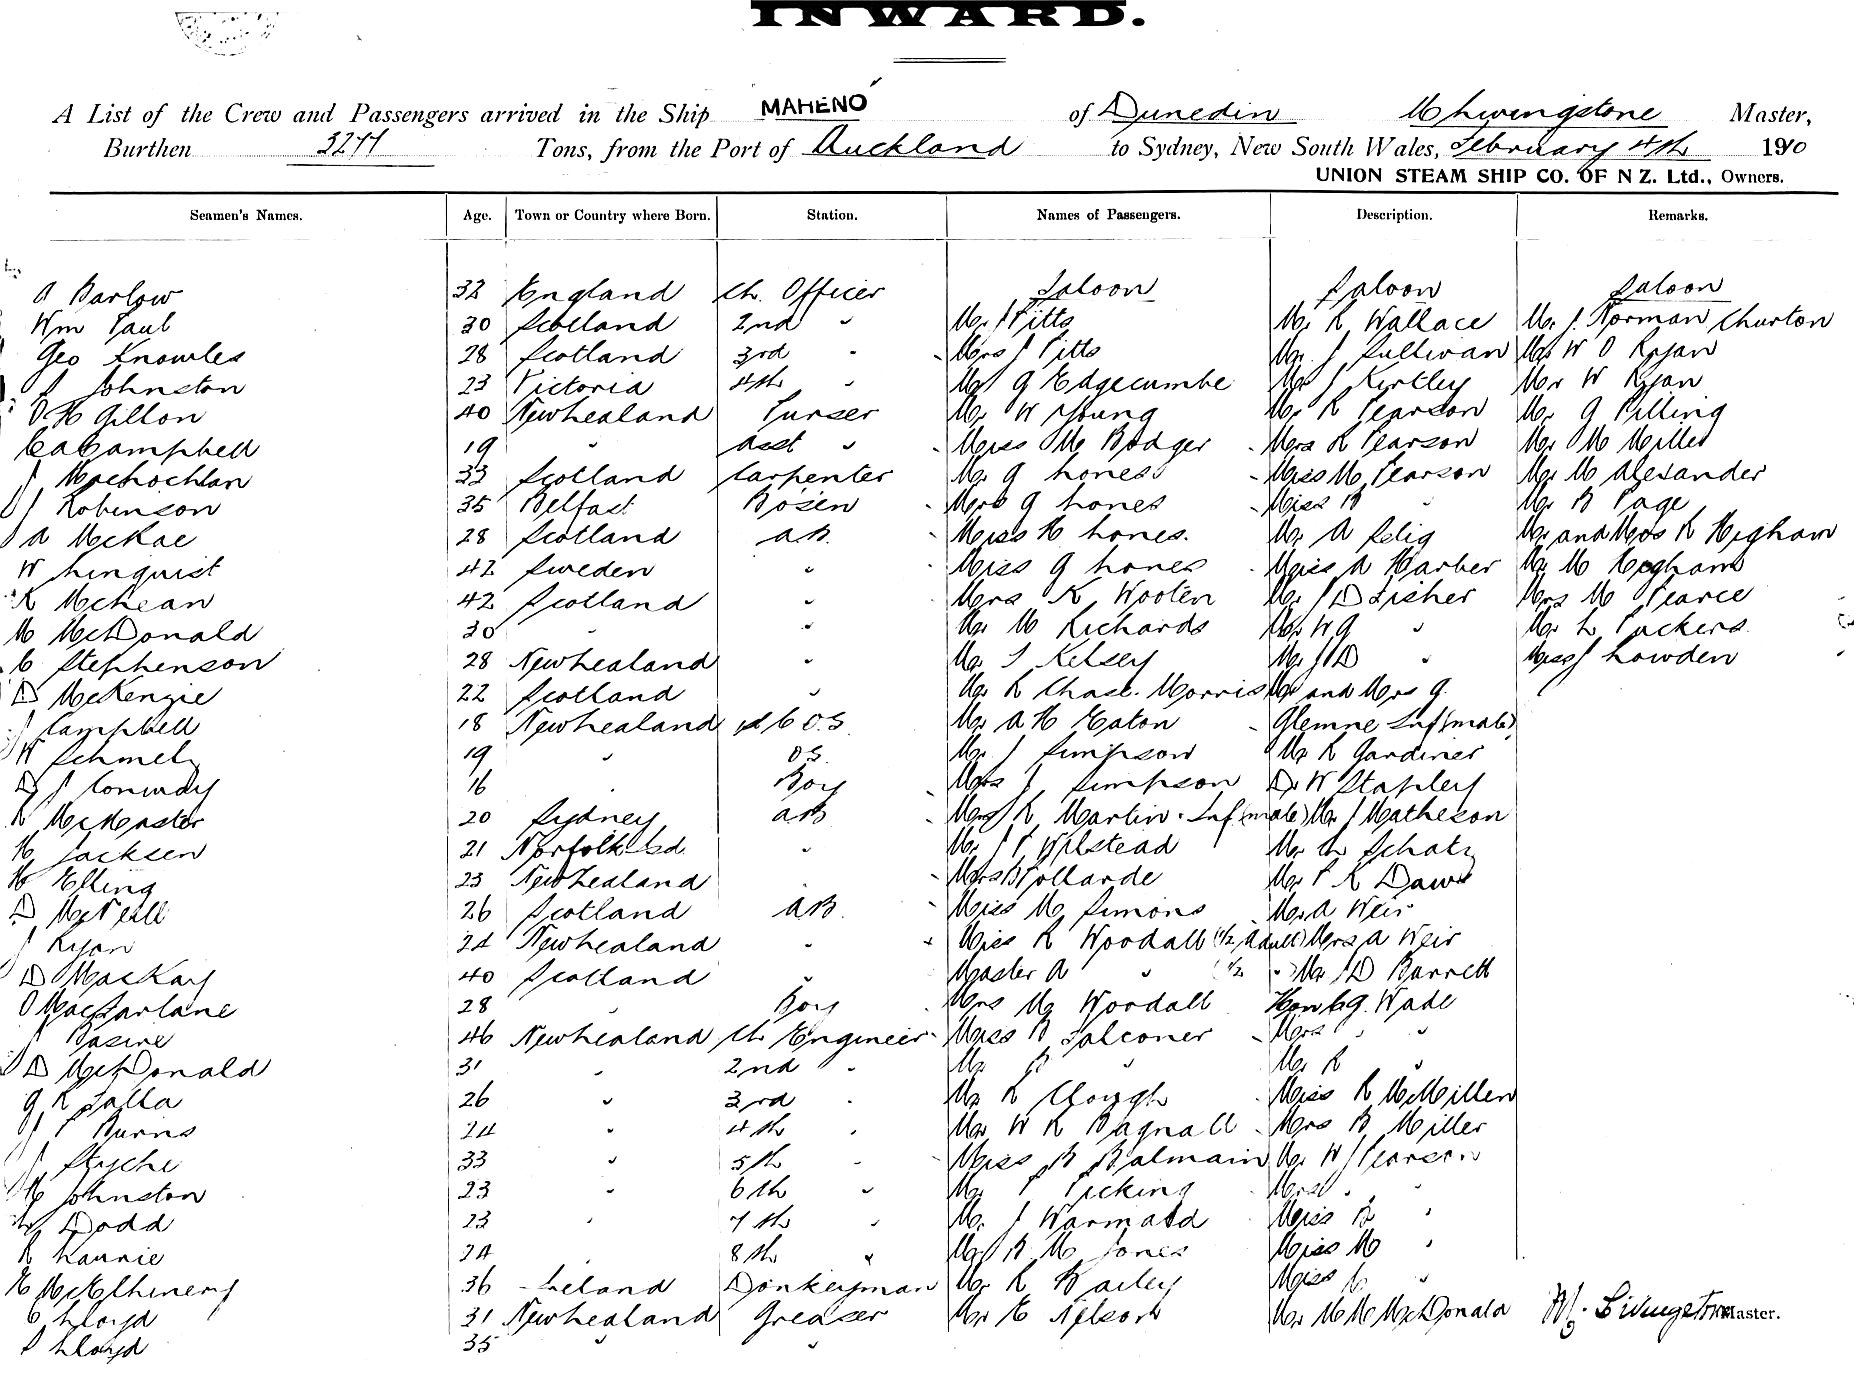 INWARD.
A List of the Crew and Passengers arrived in the Ship MAHENO of Dunedin Livingstone Master,
Burthen Tons, from the Port of Auckland to Sydney, New South Wales, February 4th 1910
UNION STEAM SHIP CO. OF N Z. Ltd., Owners.
Seamen's Names. Age. Town or Country where Born. Station. Names of Passengers. Description. Remarks.
A Barlow 32 England Ch. Officer Saloon Saloon Saloon
Wm Paul 30 Scotland 2nd " Mr J Pitts Mr R Wallace Mr J. Norman Churton
Geo Knowles 28 Scotland 3rd " Mrs J Pitts Mr. J Sullivan Mrs W O Ryan
J Johnston 23 Victoria 4th " Mr G Edgecumbe Mr J Kirtley Mr W Ryan
Gillon 40 New Zealand Purser Mr W Young Mr R Pearson Mr G Pilling
C A Campbell 19 " Asst " Miss M Badger Mrs R Pearson Mr M Miller
J MacLochlan 33 Scotland Carpenter Mr G Lones Miss M Pearson Mr M Alexander
J Robinson 35 Belfast Bosen Mrs G Lones Miss B " Mr B Page
A McRae 28 Scotland AB. Miss H Lones. Mr A Selig Mr and Mrs R Higham
W Linquist 42 Sweden " Miss G Lones Miss A Harber Mr M Higham
R McLean 42 Scotland " Mrs K Wooten Mr J D Fisher Mrs M Pearce
M McDonald 30 " " Mr M Richards Mr W G " Mr L Puckers.
C Stephenson 28 New Zealand " Mr S Kelsey Mr J D " Miss J Lowden
D McKenzie 22 Scotland " Mr R Chas. Morris Mr and Mrs G.
J Campbell 18 New Zealand O.S Mr A H Eaton Glemne Inf (male)
W Schmelz 19 " OS. Mr J Simpson Mr R Gardiner
D J Conway 16 " Boy Mrs J Simpson Dr W Stapley
R McMaster 20 Sydney AB Mrs R Martin. Inf (male) Mr J Matheson
H Jacksen 21 Norfolk Isd. " Mr J P Wilstead Mr Schatz
H Elling 23 New Zealand . Mrs B Pollarde Mr P R Dawe
D McNeill 26 Scotland AB. Miss M Simons Mr A Weir
J Ryan 24 New Zealand " Miss R Woodall (1/2 adult) Mrs A Weir
D MacKay 40 Scotland " Master A " (1/2 ") Mr J D Barrett
O MacFarlane 28 " Boy Mrs M Woodall Hon C G. Wade
J Basire 46 New Zealand Ch Engineer Miss B Falconer Mrs " "
D McDonald 31 " 2nd " Mr B " Mr R "
G R Salla 26 " 3rd " Mr R Clough Miss R McMillen
J P Burns 24 " 4th " Mr W R Bagnall Mrs B Miller
J Styche 33 " 5th " Miss B Balmain Mr W J Pearson
H Johnston 23 " 6th " Mr P Picking Mrs " "
Dodd 23 " 7th " Mr. J Warmald Miss B "
R Laurie 24 " 8th " Mr B M Jones Miss M "
H McElhinery 36 Ireland Donkeyman Mr R Bailey Miss C "
C Lloyd 31 New Zealand Greaser Mr E Nelson Mr M M McDonald M. Livingstone Master.
P Lloyd 35 " "